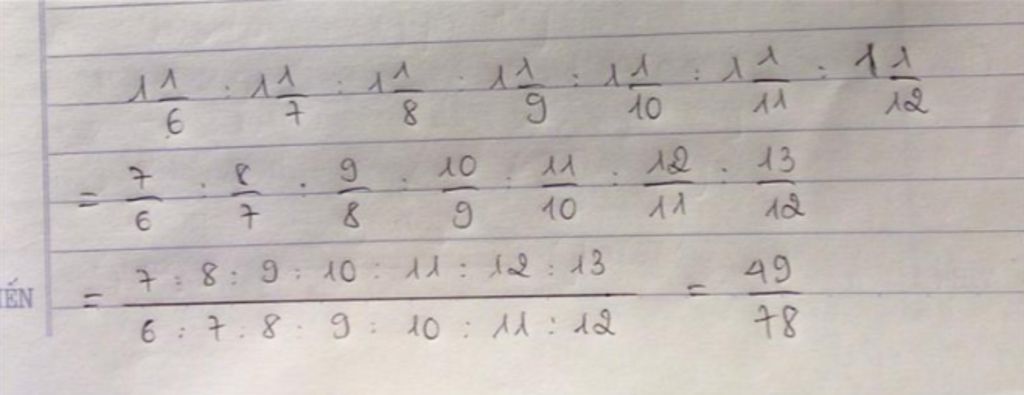 1 1/6 : 1 1/7 : 1 1/8 : 1 1/9 : 1 1/10 : 1 1/11 : 1 1/12
= 7/6 : 8/7 : 9/8 : 10/9 : 11/10 : 12/11 : 13/12
= 7 : 8 : 9 : 10 : 11 : 12 : 13 / 6 : 7 : 8 : 9 : 10 : 11 : 12 = 49/78